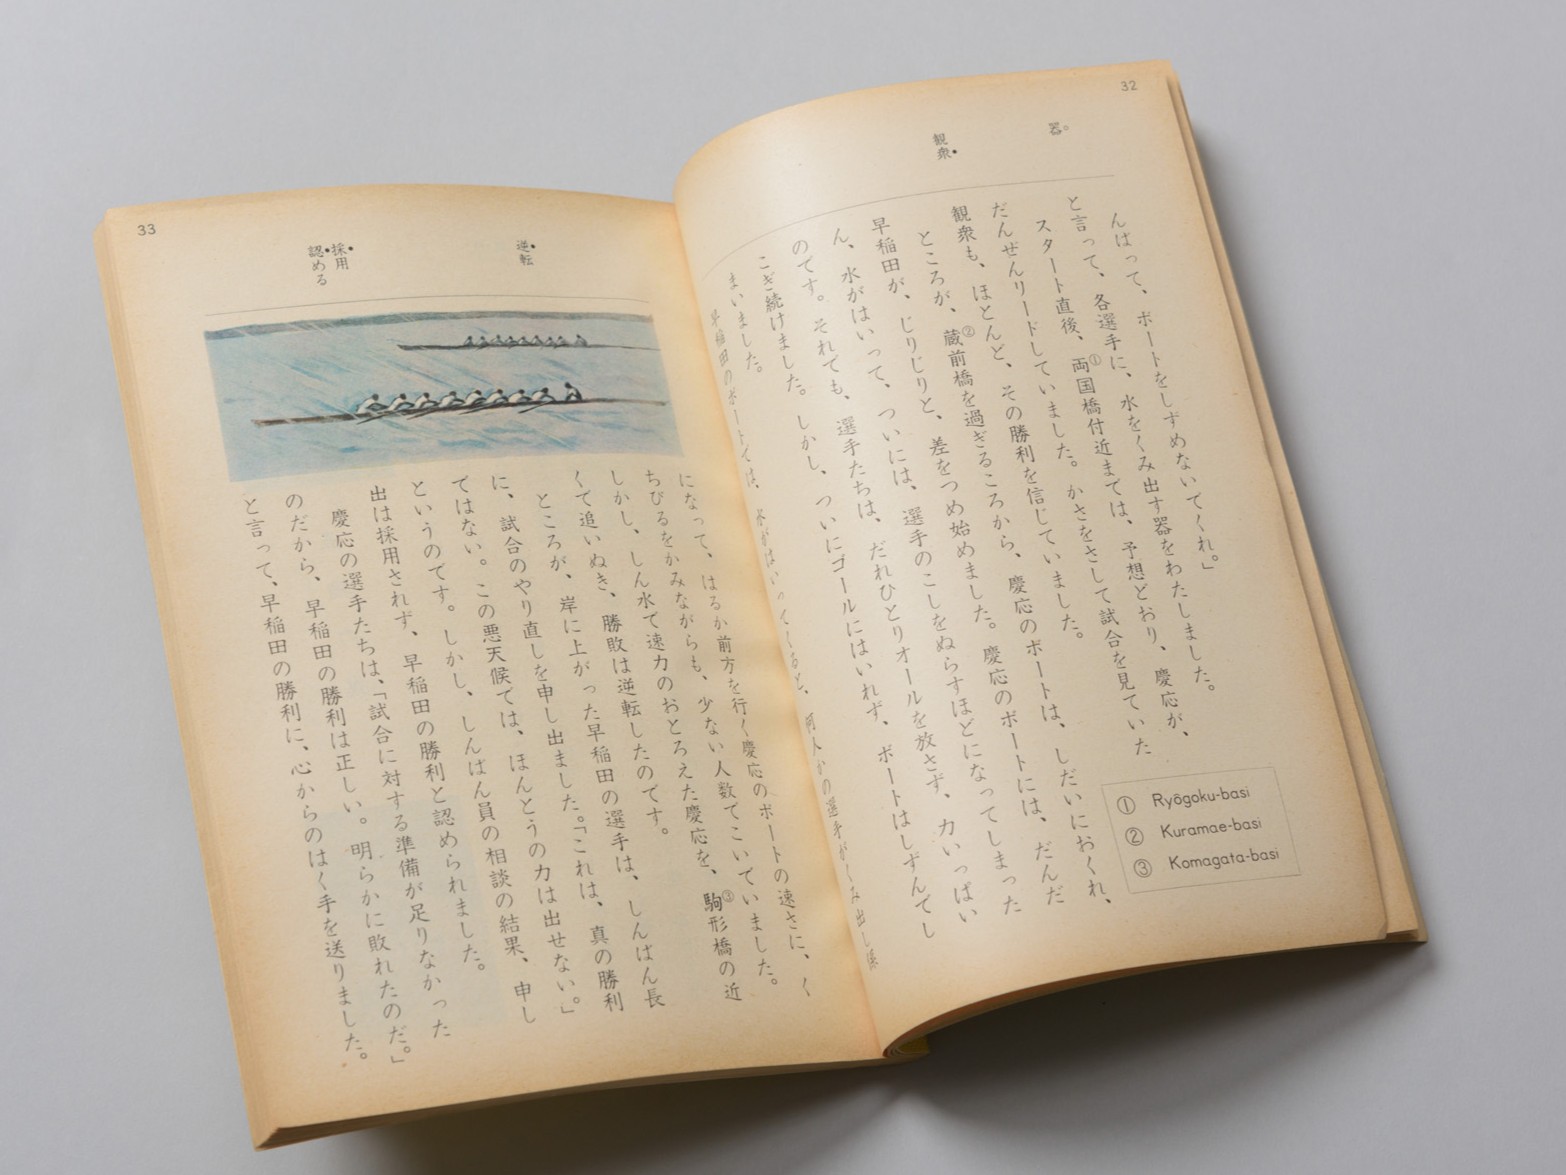 32
器
観衆
んはって、ボートをしずめないでくれ。」
と言って、各選手に、水をくみ出す器をわたしました。
スタート直後、①両国橋付近までは、予想どおり、慶応が、
だんぜんリードしていました。かさをさして試合を見ていた
観衆も、ほとんど、その勝利を信じていました。
ところが、②蔵前橋を過ぎるころから、慶応のボートは、しだいにおくれ、
早稲田が、じりじりと、差をつめ始めました。慶応のボートには、だんだ
ん、水がはいって、ついには、選手のこしをぬらすほどになってしまった
のです。それでも、選手たちは、だれひとりオールを放さず、力いっぱい
こぎ続けました。しかし、ついにゴールにはいれず、ボートはしずんでし
まいました。
早稲田のボートでは、水がはいってくると、何人かの選手がくみ出し係
① Ryôgoku-basi
② Kuramae-basi
③ Komagata-basi
33
逆転
採用
認める
になって、はるか前方を行く慶応のボートの速さに、く
ちびるをかみながらも、少ない人数でこいでいました。
しかし、しん水で速力のおとろえた慶応を、③駒形橋の近
くで追いぬき、勝敗は逆転したのです。
ところが、岸に上がった早稲田の選手は、しんぱん長
に、試合のやり直しを申し出ました。「これは、真の勝利
ではない。この悪天候では、ほんとうの力は出せない。」
というのです。しかし、しんぱん員の相談の結果、申し
出は採用されず、早稲田の勝利と認められました。
慶応の選手たちは、「試合に対する準備が足りなかった
のだから、早稲田の勝利は正しい。明らかに敗れたのだ。」
と言って、早稲田の勝利に、心からのはく手を送りました。